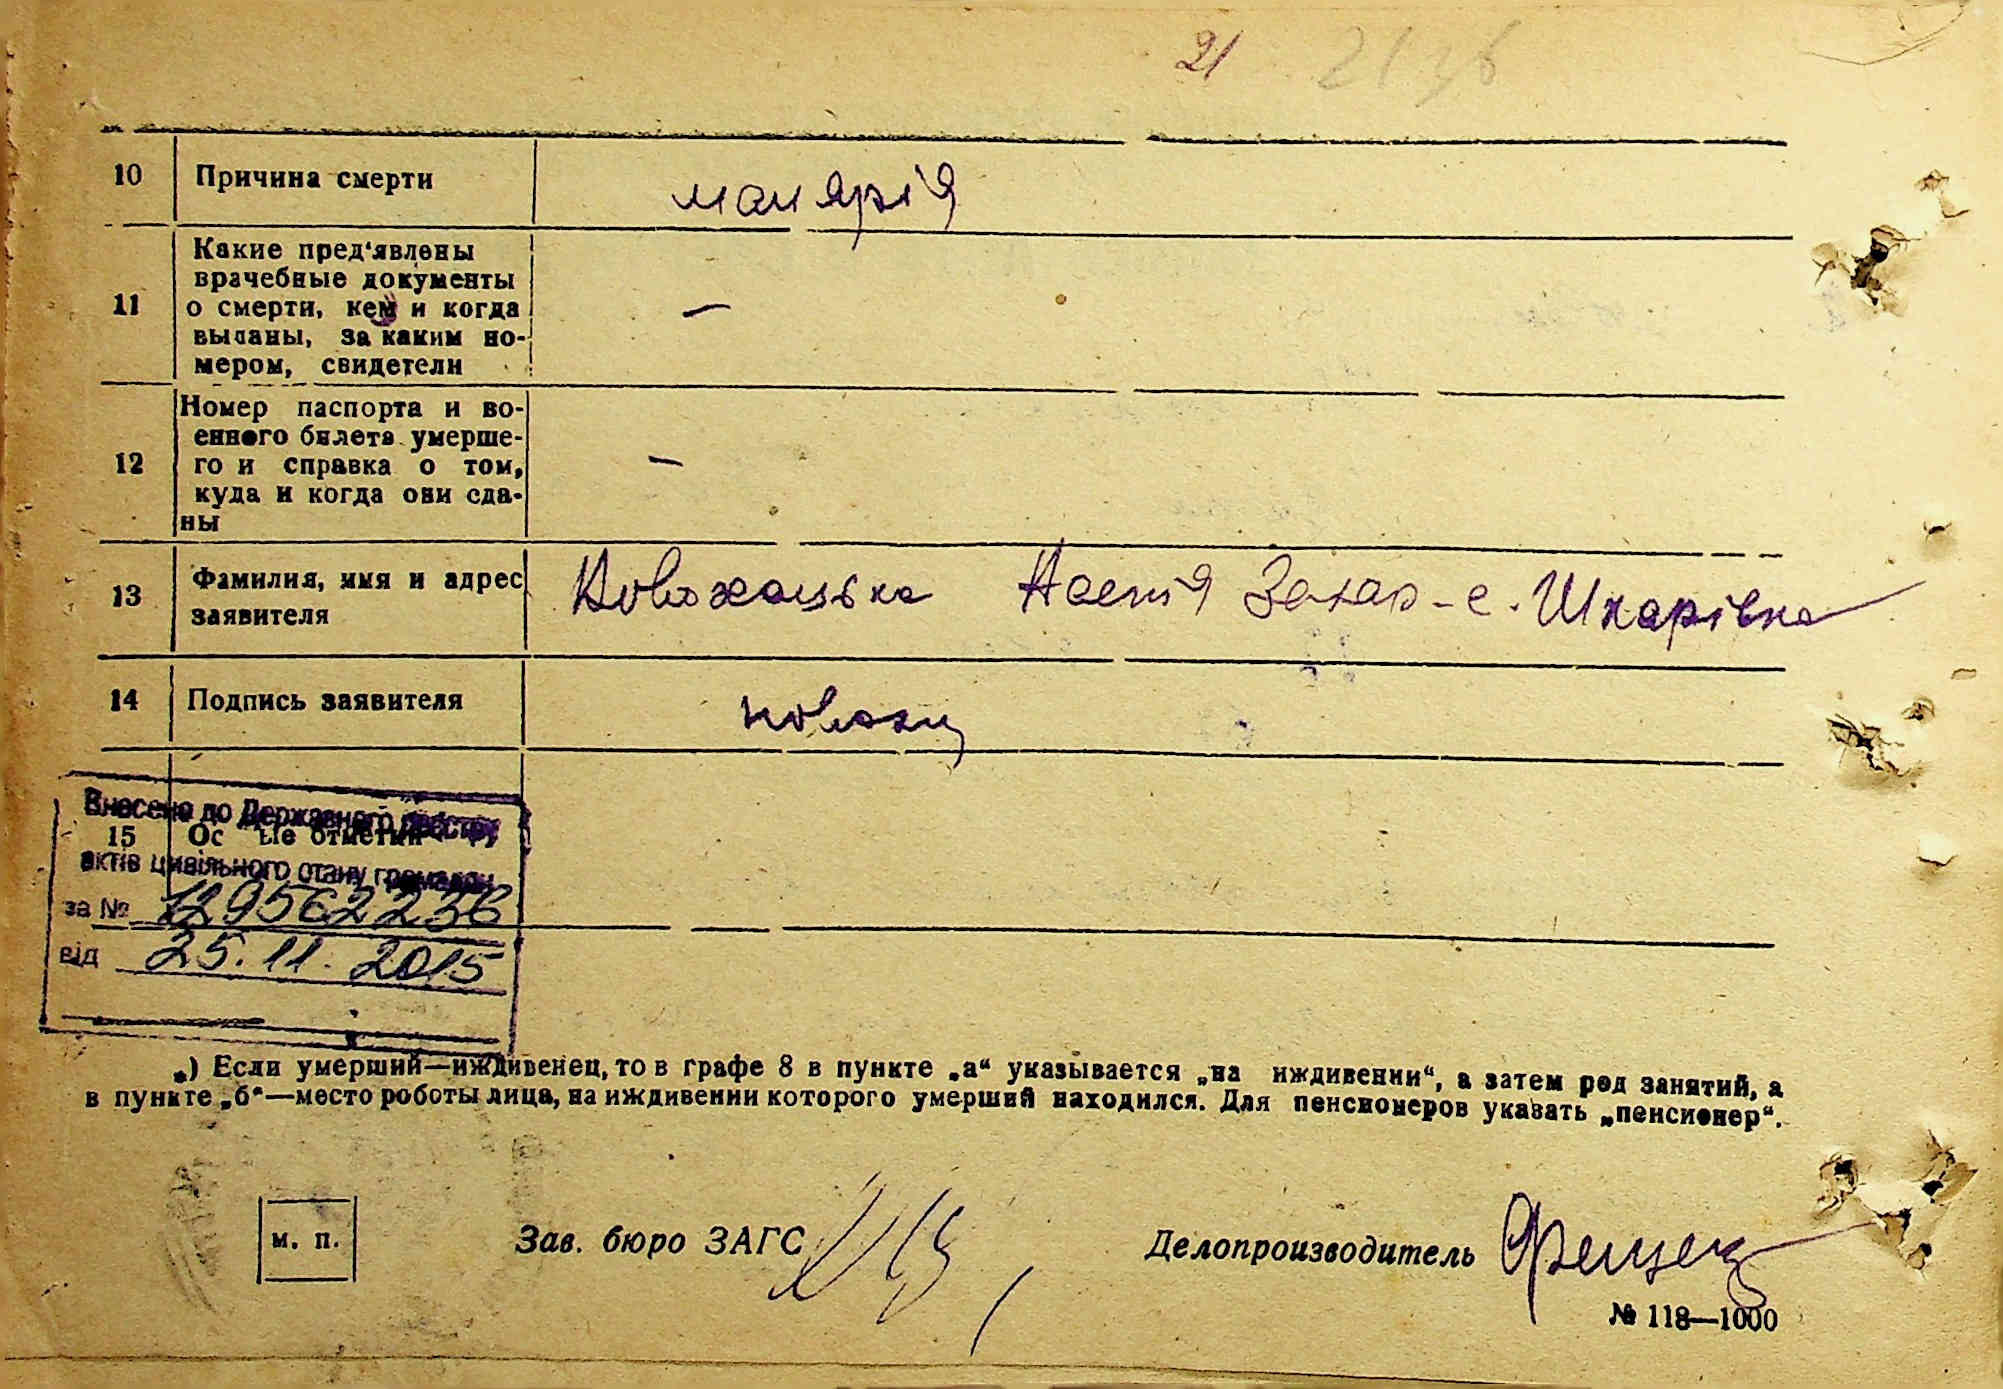 21 2136
10 Причина смерти малярія
11 Какие пред'явлены
врачебные документы
о смерти, кем и когда
выданы, за каким но-
мером, свидетели —
12 Номер паспорта и во-
енного билета умерше-
го и справка о том,
куда и когда они сда-
ны —
13 Фамилия, имя и адрес
заявителя Настія Захар - с. Шкарівка
14 Подпись заявителя
Внесено до Державного реєстру
15 Ос ые отметки
актів цивільного стану громадян
за № 129562236
від 25.11.2015
*) Если умерший—иждивенец, то в графе 8 в пункте „а“ указывается „на иждивении“, а затем род занятий, а
в пункте „б“—место роботы лица, на иждивении которого умерший находился. Для пенсионеров указать „пенсионер“.
м. п. Зав. бюро ЗАГС Делопроизводитель
№ 118—1000